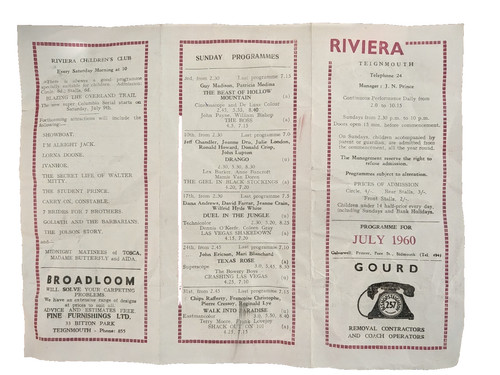 RIVIERA CHILDREN'S CLUB
Every Saturday Morning at 10
There's always a good programme
BLAZING THE OVERLAND TRAIL
The new super, Columbia Serial starts on
Saturday, July 9th.
Forthcoming attractions will include the
following—
SHOWBOAT.
I'M ALRIGHT JACK.
LORNA DOONE.
IVANHOE.
THE SECRET LIFE OF WALTER
MITTY.
THE STUDENT PRINCE.
CARRY ON, CONSTABLE.
7 BRIDES FOR 7 BROTHERS.
GOLIATH AND THE BARBARIANS.
THE JOLSON STORY.
and—
MIDNIGHT MATINEES of TOSCA,
MADAME BUTTERFLY and AIDA.
BROADLOOM
WILL SOLVE YOUR CARPETING
PROBLEMS
We have an extensive range of designs
at prices to suit all.
ADVICE AND ESTIMATES FREE
FINE FURNISHINGS LTD.
33 BITTON PARK
TEIGNMOUTH. Phone:
SUNDAY PROGRAMMES
3rd, from 2.30 Last programme 7.15
Guy Madison, Patricia Medina
THE BEAST OF HOLLOW
MOUNTAIN
Cinemascope and De Luxe Colour
2.45, 5.30, 8.40
John Payne, William Bishop
THE BOSS
4.5, 7.15
10th, from 2.30 Last programme 7.0
Jeff Chandler, Joanne Dru, Julie London,
Ronald Howard, Donald Crisp,
John Lupton
DRANGO
Lex Barker, Anne Bancroft
Mamie Van Doren
THE GIRL IN BLACK STOCKINGS
4.20, 7.20
17th, from 2.30 Last programme 7.5
Dana Andrews, David Farrar, Jeanne Crain,
Wilfrid Hyde White
DUEL IN THE JUNGLE
Technicolor
Dennis O'Keefe, Coleen Gray
LAS VEGAS SHAKEDOWN
4.15, 7.20
24th, from 2.45 Last programme 7.15
John Ericson, Mari Blanchard
TEXAS ROSE
Superscope
The Bowery Boys
CRASHING LAS VEGAS
31st, from 2.45 Last programme 7.15
Chips Rafferty, Francoise Christophe,
Pierre Cressoy, Reginald Lye
WALK INTO PARADISE
Eastmancolor
SHACK OUT ON 101
4.25, 7.15
RIVIERA
TEIGNMOUTH
Telephone 24
Manager : J. N. Prince
Continuous Performance Daily from
2.0 to 10.15
Sundays from 2.30 p.m. to 10 p.m.
Doors open 15 min. before commencement.
On Sundays, children accompanied by
parent or guardian, are admitted from
the commencement, all the year round.
The Management reserve the right to
refuse admission.
Programme subject to alteration.
PRICES OF ADMISSION
Children under 14 half-price every day,
including Sundays and Bank Holidays.
PROGRAMME FOR
JULY 1960
GOURD
TEIGNMOUTH
257
REMOVAL CONTRACTORS
AND COACH OPERATORS